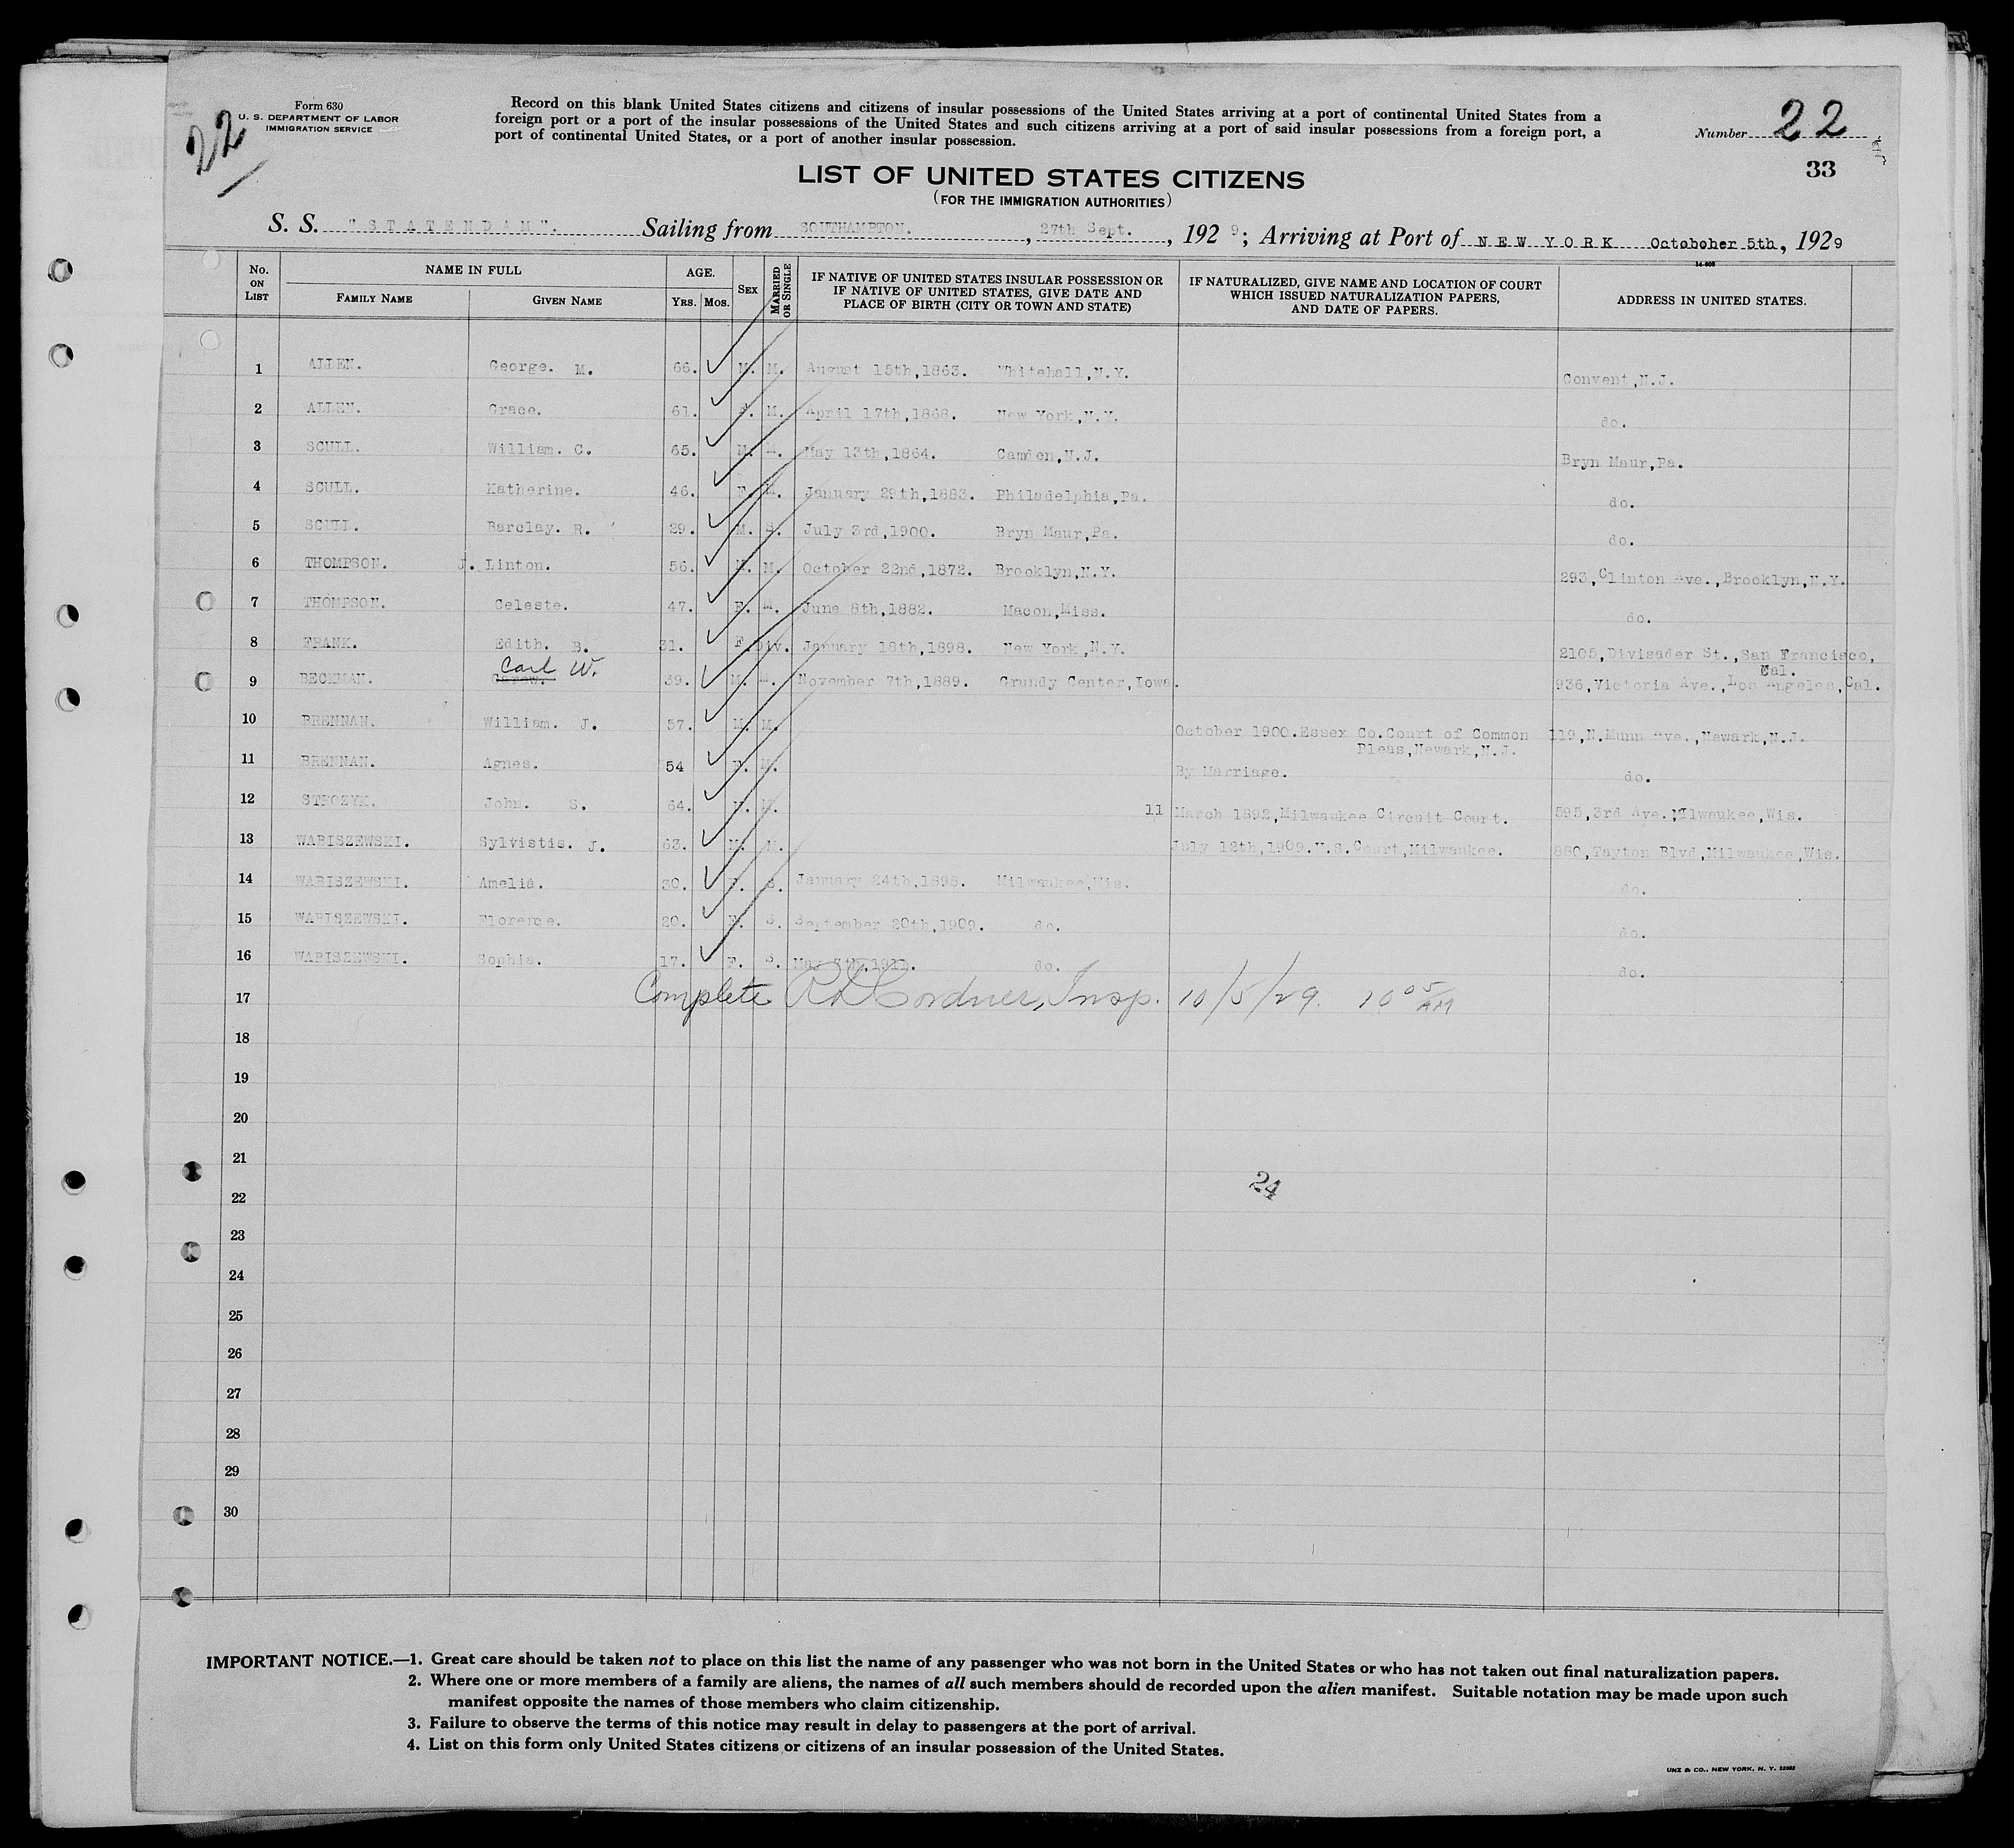 22
Form 630
U. S. DEPARTMENT OF LABOR
IMMIGRATION SERVICE
Record on this blank United States citizens and citizens of insular possessions of the United States arriving at a port of continental United States from a
foreign port or a port of the insular possessions of the United States and such citizens arriving at a port of said insular possessions from a foreign port, a
port of continental United States, or a port of another insular possession.
Number 22
33
LIST OF UNITED STATES CITIZENS
(FOR THE IMMIGRATION AUTHORITIES)
S. S. "STATENDAM". Sailing from SOUTHAMPTON. , 27th Sept. , 1929; Arriving at Port of NEW YORK Octobober 5th, 1929
14-608
No. ON LIST NAME IN FULL FAMILY NAME GIVEN NAME AGE. YRS. MOS. SEX MARRIED OR SINGLE IF NATIVE OF UNITED STATES INSULAR POSSESSION OR IF NATIVE OF UNITED STATES, GIVE DATE AND PLACE OF BIRTH (CITY OR TOWN AND STATE) IF NATURALIZED, GIVE NAME AND LOCATION OF COURT WHICH ISSUED NATURALIZATION PAPERS, AND DATE OF PAPERS. ADDRESS IN UNITED STATES.
1 ALLEN. George. M. 66. M. M. August 15th,1863. Whitehall,N.Y. Convent,N.J.
2 ALLEN. Grace. 61. F. M. April 17th,1868. New York,N.Y. do.
3 SCULL. William. C. 65. M. M. May 13th,1864. Camden,N.J. Bryn Maur,Pa.
4 SCULL. Katherine. 46. F. M. January 29th,1883. Philadelphia,Pa. do.
5 SCULL. Barclay. R. 29. M. S. July 3rd,1900. Bryn Maur,Pa. do.
6 THOMPSON. J. Linton. 56. M. M. October 22nd,1872. Brooklyn,N.Y. 293,Clinton Ave.,Brooklyn,N.Y.
7 THOMPSON. Celeste. 47. F. M. June 8th,1882. Macon,Miss. do.
8 FRANK. Edith. B. 31. F. Div. January 18th,1898. New York,N.Y. 2105,Divisader St.,San Francisco, Cal.
Carl W.
9 BECKMAN. Carew. 39. M. M. November 7th,1889. Grundy Center,Iowa. 936,Victoria Ave.,Los Angeles,Cal.
10 BRENNAN. William. J. 57. M. M. October 1900.Essex Co.Court of Common Pleas,Newark,N.J. 119,N.Munn Ave.,Newark,N.J.
11 BRENNAN. Agnes. 54 F. M. By Marriage. do.
12 STROZYK. John. S. 64. M. M. 11 March 1892,Milwaukee Circuit Court. 595,3rd Ave.Milwaukee,Wis.
13 WABISZEWSKI. Sylvistis. J. 63. M. M. July 12th,1909.U.S.Court,Milwaukee. 880,Tayton Blvd,Milwaukee,Wis.
14 WABISZEWSKI. Amelia. 30. F. S. January 24th,1898. Milwaukee,Wis. do.
15 WABISZEWSKI. Florence. 20. F. S. September 20th,1909. do. do.
16 WABISZEWSKI. Sophia. 17. F. S. May 7th,1911. do. do.
17 Complete Cordner, Insp. 10/5/29. 10 05 AM
18
19
20
21
24
22
23
24
25
26
27
28
29
30
IMPORTANT NOTICE.—1. Great care should be taken not to place on this list the name of any passenger who was not born in the United States or who has not taken out final naturalization papers.
2. Where one or more members of a family are aliens, the names of all such members should de recorded upon the alien manifest. Suitable notation may be made upon such
manifest opposite the names of those members who claim citizenship.
3. Failure to observe the terms of this notice may result in delay to passengers at the port of arrival.
4. List on this form only United States citizens or citizens of an insular possession of the United States.
UNZ & CO., NEW YORK, N. Y. 22062